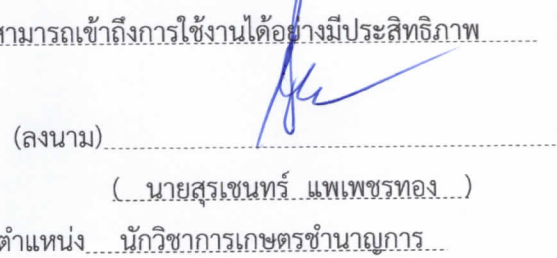 สามารถเข้าถึงการใช้งานได้อย่างมีประสิทธิภาพ
(ลงนาม)
( นายสุรเชนทร์ แพเพชรทอง )
ตำแหน่ง นักวิชาการเกษตรชำนาญการ